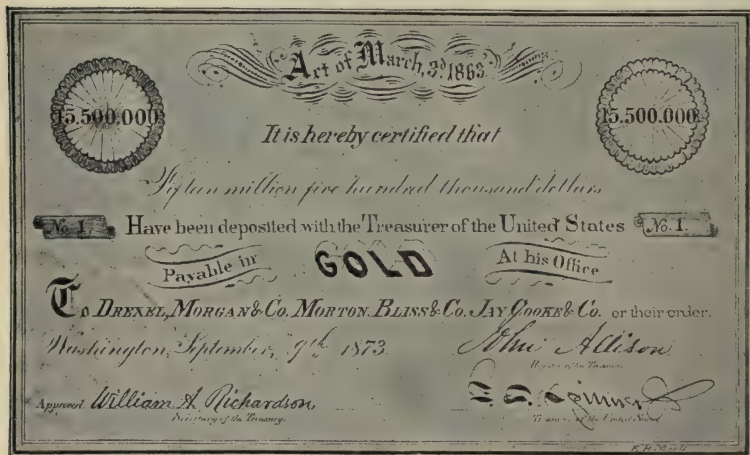 Act of March, 3d 1863
15.500.000 15.500.000
It is hereby certified that
Fifteen million five hundred thousand dollars
No. 1. Have been deposited with the Treasurer of the United States No. 1.
Payable in GOLD At his Office
To DREXEL, MORGAN & Co. MORTON, BLISS & Co. JAY COOKE & Co. or their order.
Washington, September, 9th 1873. John Allison
Register of the Treasury
Approved William A. Richardson
Secretary of the Treasury. Treasurer of the United States